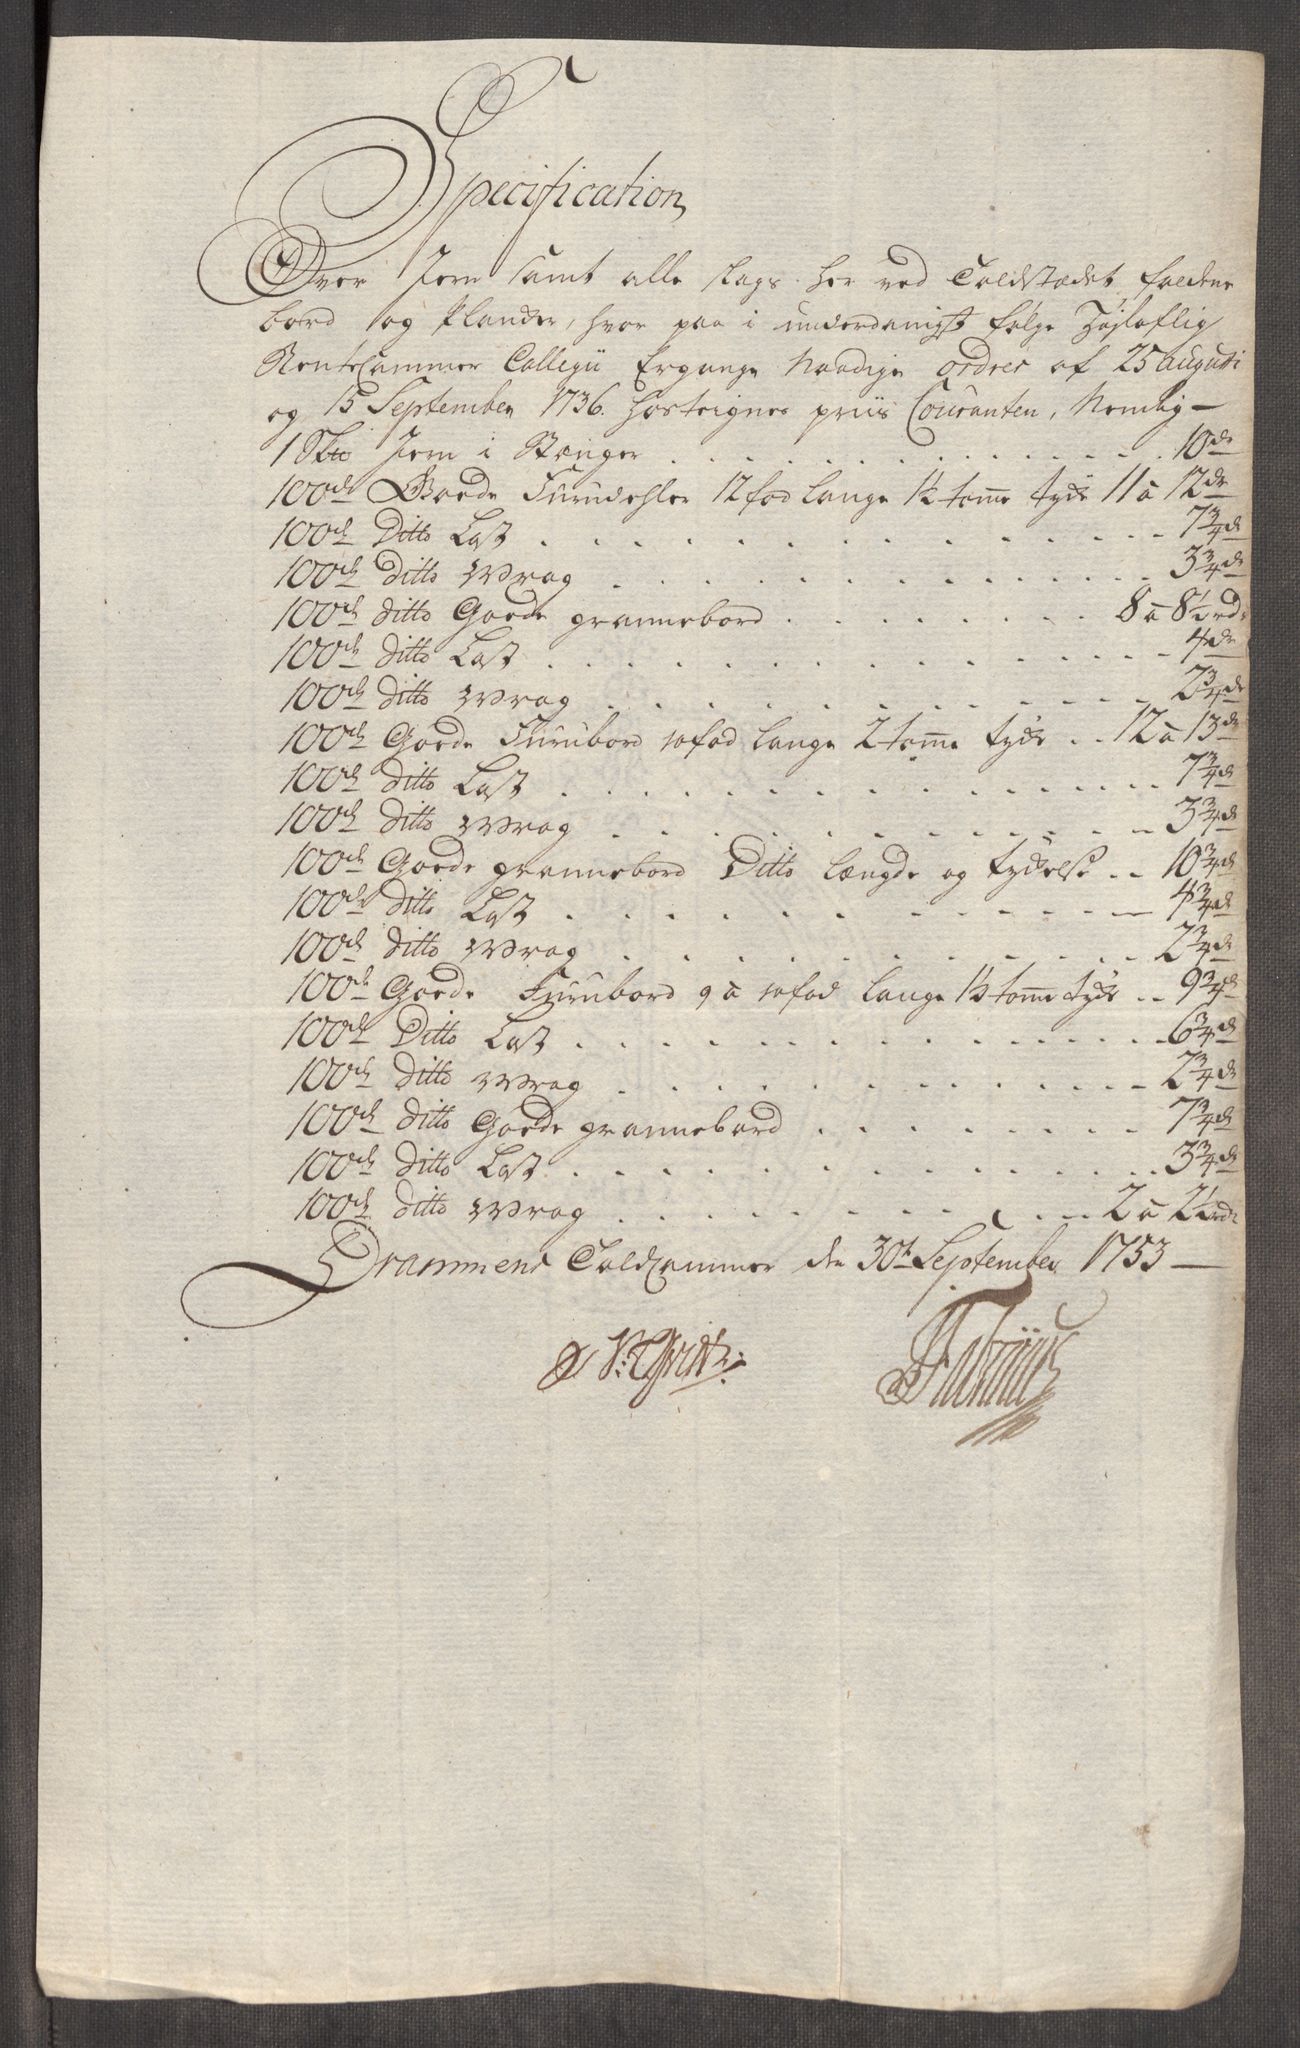 Specification
Over Jern samt alle slags her ved Toldstædet faldene
bord og Plancker, hvor paa i underdanigst følge Højloflig
RenteCammer Collegii Ergangne Naadige ordres af 25 augusti
og 15 September 1736. hosteignes priis Couranten, Nemlig –
1 Sk℔ Jern i Stænger . . . 10 rdr
100de Goede Furudehler 12 fod lange 1½ tomme tyde 11 a 12 dr
100de Ditto Last . . . 7¾ rd
100de ditto Wrag . . . 3¾ rd
100de ditto Goede grannebord . . . 8 a 8½ rd
100de ditto Last . . . 4 rdr
100de ditto Wrag . . . 2¾ rd
100de Goede Furubord 10 fod lange 2 tomme tyde . . 12 a 13 dr
100de ditto Last . . . 7¾ rd
100de ditto Wrag . . . 3¾ rd
100de Goede grannebord Ditto længde og tydelse . . 10¾ rd
100de ditto Last . . . 4¾ rd
100de ditto Wrag . . . 2¾ rd
100de Goede Furubord 9 a 10 fod lange 1½ tomme tyde . . 9¾ rd
100de Ditto Last . . . 6¾ rd
100de ditto Wrag . . . 2¾ rd
100de ditto Goede grannebord . . . 7¾ rd
100de ditto Last . . . 3¾ rd
100de ditto Wrag . . . 2 a 2½ rdr
Drammens Toldcammer den 30t September 1753 —